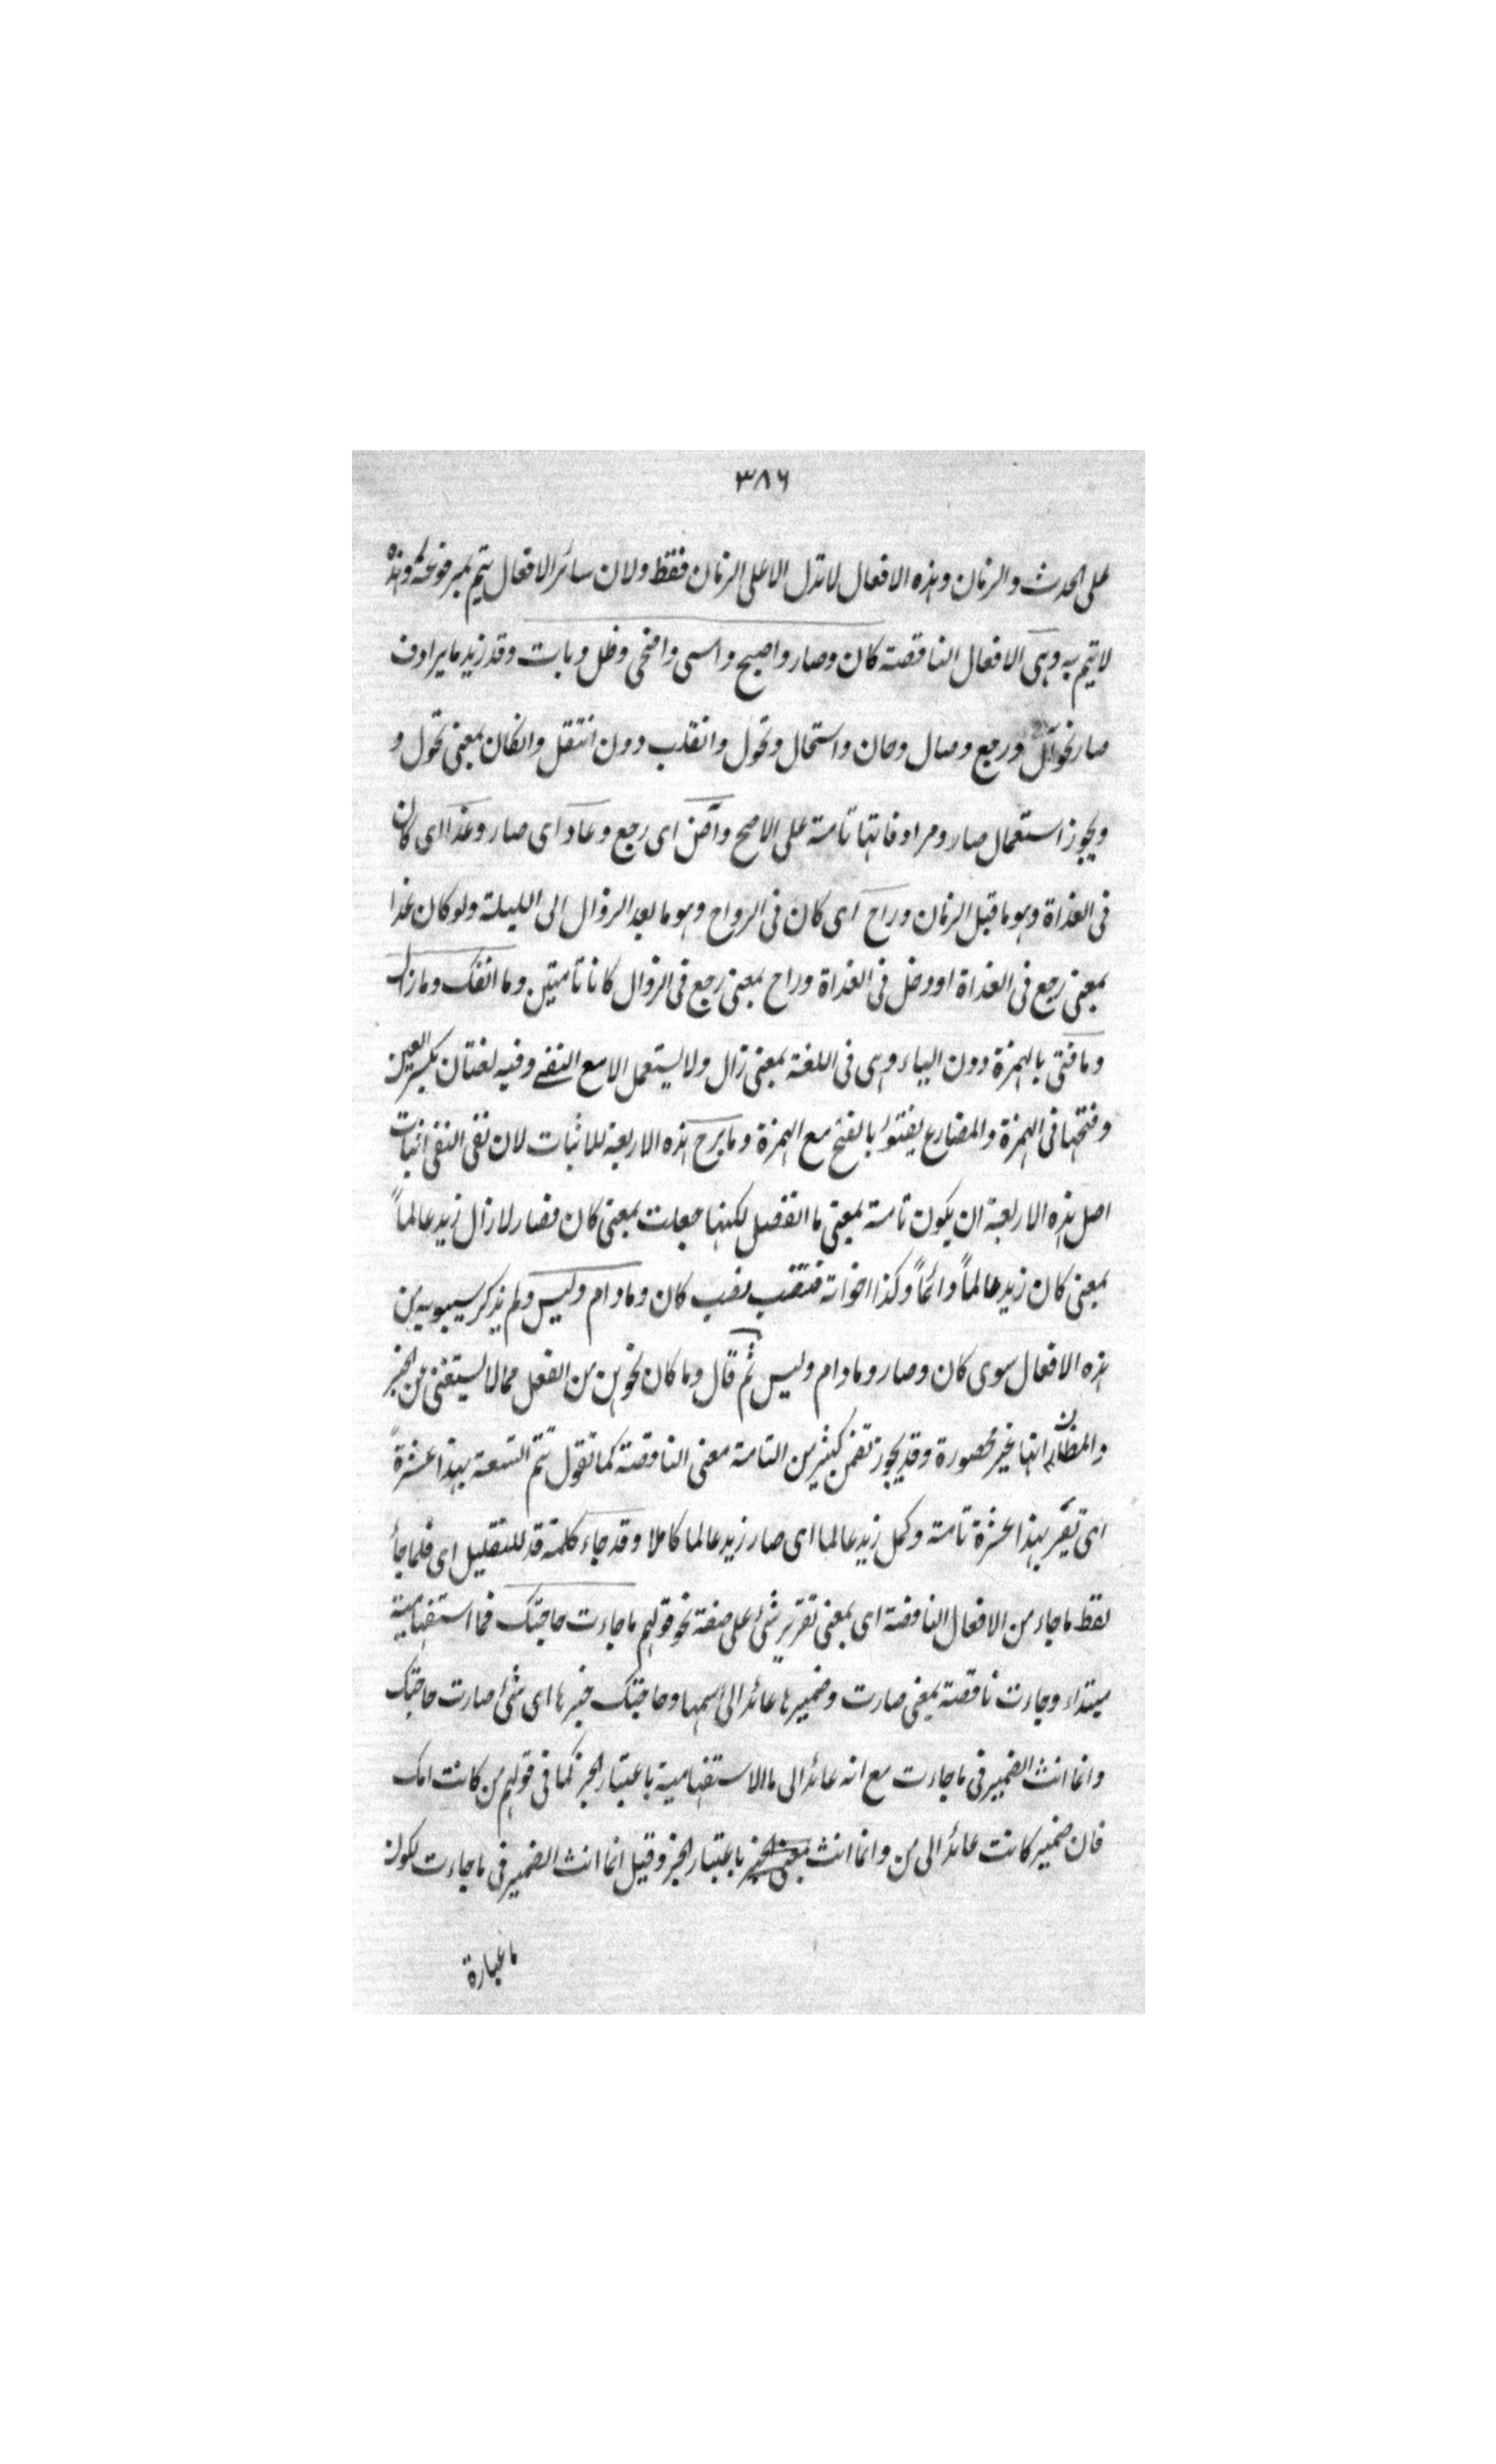 ٣٨٦
على الحدث والزمان وهذه الافعال لا تدل الا على الزمان فقط ولان سائر الافعال يتم بمرفوعه وهذه
لا يتم به وهى الافعال الناقصة كان وصار واصبح وامسى واضحى وظل وبات وقد زيد ما يرادف
صار نحو آل ورجع وصال وحان واستحال وتحول وانقلب دون انتقل وانكان بمعنى تحول و
ويجوز استعمال صار ومرادفاتها تامة على الاصح وآض اى رجع وعاد اى صار وغدا اى كان
فى الغداة وهو ما قبل الزمان وراح اى كان فى الرواح وهو ما بعد الزوال الى الليلة ولو كان غدا
بمعنى رجع فى الغداة او دخل فى الغداة وراح بمعنى رجع فى الزوال كانا تامتين وما انفك وما زال
وما فتئ بالهمزة دون الياء وهى فى اللغة بمعنى زال ولا يستعمل الا مع النفى وفيه لغتان بكسر العين
وفتحها فى الهمزة والمضارع يفتؤ بالفتح مع الهمزة وما برح هذه الاربعة للاثبات لان نفى النفى اثبات
اصل هذه الاربعة ان يكون تامة بمعنى ما انفصل لكنها جعلت بمعنى كان فصار لا زال زيد عالماً
بمعنى كان زيد عالماً دائماً وكذا اخواته فنصب نصب كان وما دام وليس ولم يذكر سيبويه من
هذه الافعال سوى كان وصار وما دام وليس ثم قال وما كان نحوهن من الفعل مما لا يستغنى عن الخبر
والظاهر انها غير محصورة وقد يجوز تضمن كثير من التامة معنى الناقصة كما تقول تتم التسعة بهذا عشرةً
اى تصير بهذا عشرة تامة وكمل زيد عالما اى صار زيد عالما كاملا وقد جاء كلمة قد للتقليل اى قلما جاء
لفظ ما جاء من الافعال الناقصة اى بمعنى تقرير شئ على صفة نحو قولهم ما جاءت حاجتك فما استفهامية
مبتداء وجاءت ناقصة بمعنى صارت وضميرها عائد الى اسمها وحاجتك خبرها اى شئ صارت حاجتك
وانما انث الضمير فى ما جاءت مع انه عائد الى ما الاستفهامية باعتبار الخبر كما فى قولهم من كانت امك
فان ضمير كانت عائد الى من وانما انث باعتبار الخبر وقيل انما انث الضمير فى ما جاءت لكون
ما عبارة